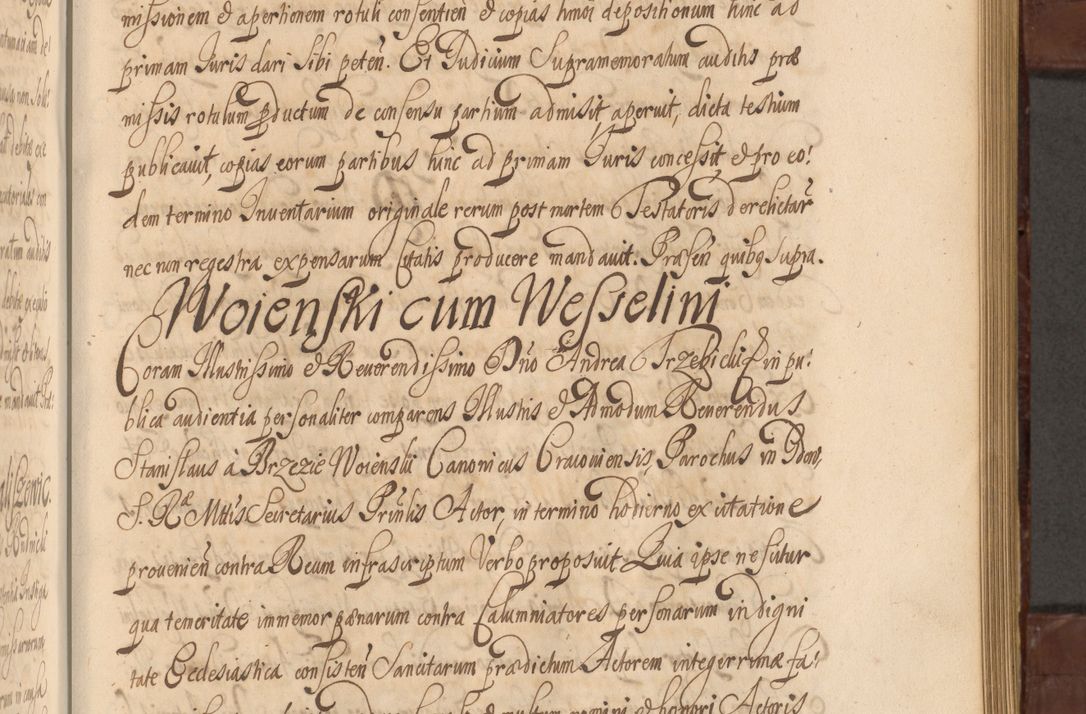 missionem & apertionem rotuli consentien̄ & copias hmōi depositionum hinc ad
primam Iuris dari sibi peten̄. Et Iudicium Supramemoratum auditis præ
missis rotulum ꝓductum de consensu partium admisit aperuit, dicta testium
publicauit, copias eorum partibus hinc ad primam Iuris concessit, & pro eo:
dem termino Inuentarium originale rerum post mortem Testatoris derelictar̄
nec non regestra expensarum Citatis producere mandauit. Præsen̄ quibꝫ supra.
Woienski cum Wesselini
Coram Illustrissimo & Reuerendissimo Dn̄o Andrea Trzebicki in pu:
blica audientia personaliter comparens Illustris & Admodum Reuerendus
Stanislaus à Brzezie Woienski Canonicus Cracouiensis, Parochus in
S. Ræ Mttis Secretarius Prin̄lis Actor, in termino hodierno ex citatione
prouenien̄ contra Reum infrascriptum Verbo proposuit Quia ipse nefutur
qua temeritate immemor pœnarum contra Calumniatores personarum in digni
tate Ecclesiastica consisten̄ Sancitarum prædictum Actorem integerrimæ fa:
& multum nomini & honori Actoris